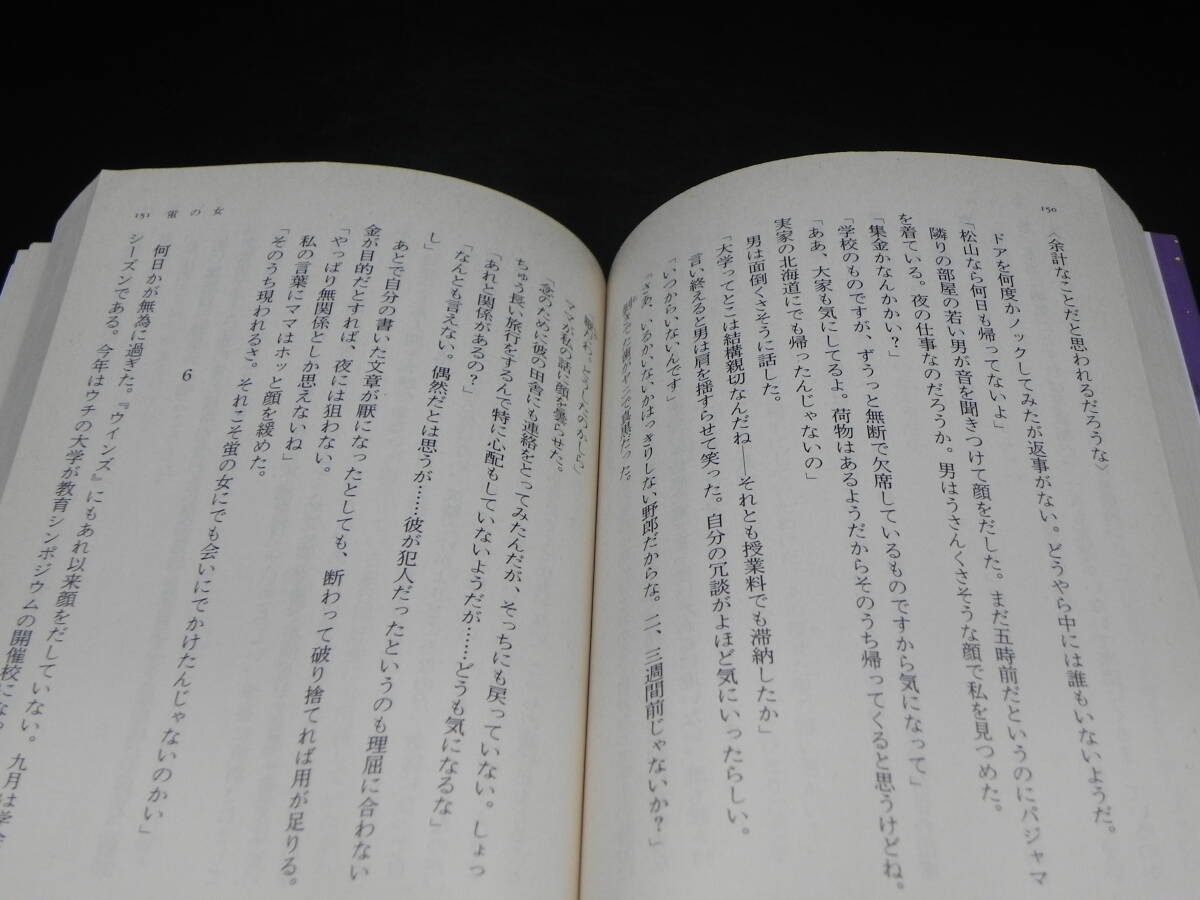 150
〈余計なことだと思われるだろうな〉
ドアを何度かノックしてみたが返事がない。どうやら中には誰もいないようだ。
「松山なら何日も帰ってないよ」
隣りの部屋の若い男が音を聞きつけて顔をだした。まだ五時前だというのにパジャマ
を着ている。夜の仕事なのだろうか。男はうさんくさそうな顔で私を見つめた。
「集金かなんかかい？」
「学校のものですが、ずうっと無断で欠席しているものですから気になって」
「ああ、大家も気にしてるよ。荷物はあるようだからそのうち帰ってくると思うけどね。
実家の北海道にでも帰ったんじゃないの」
男は面倒くさそうに話した。
「大学ってとこは結構親切なんだね――それとも授業料でも滞納したか」
言い終えると男は肩を揺すらせて笑った。自分の冗談がよほど気にいったらしい。
「いつからいないんです」
「さあ、いるかいないかはっきりしない野郎だからな。二、三週間前じゃないか？」
151 蛍の女
ママが私の話に顔を曇らせた。
「念のために彼の田舎にも連絡をとってみたんだが、そっちにも戻っていない。しょっ
ちゅう長い旅行をするんで特に心配もしていないようだが……どうも気になるな」
「あれと関係があるの？」
「なんとも言えない。偶然だとは思うが……彼が犯人だったというのも理屈に合わない
し」
あとで自分の書いた文章が厭になったとしても、断わって破り捨てれば用が足りる。
金が目的だとすれば、夜には狙わない。
「やっぱり無関係としか思えないね」
私の言葉にママはホッと顔を緩めた。
「そのうち現われるさ。それこそ蛍の女にでも会いにでかけたんじゃないのかい」
6
何日かが無為に過ぎた。『ウインズ』にもあれ以来顔をだしていない。九月は学会
シーズンである。今年はウチの大学が教育シンポジウムの開催校にな